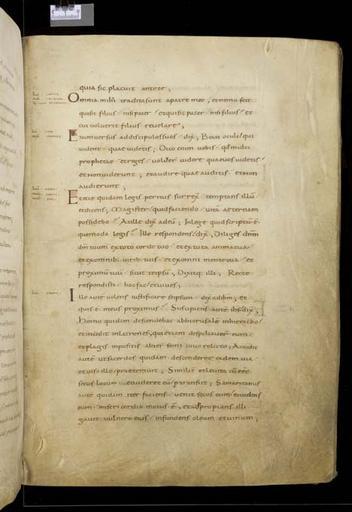 quia sic placuit ante te;
Omnia mihi tradita sunt a patre meo; et nemo scit
qui sit filius nisi pater; et qui sit pater nisi filius; et
cui voluerit filius revelare;
Et conversus ad discipulos suos dix; Beati oculi qui
vident quae videtis; Dico enim vobis qd multi
prophetae et reges voluer videre quae vos videtis
et non viderunt; et audire quae auditis et non
audierunt;
Et ecce quidam legis peritus surrex temptans illū
et dicens; Magister quid faciendo vitā aeternam
possidebo; At ille dix ad eū; In lege quid scriptū ē
quomodo legis; Ille respondens dix; Diliges dnm
dm tuum ex toto corde tuo et ex tota anima tua
et ex omnibus viribus tuis et ex omni mente tua et
proximū tuū sicut te ipsū; Dixitq; illi; Recte
respondisti hoc fac et vives;
Ille autē volens iustificare se ipsum dix ad ihm; et
quis ē meus proximus; Suscipiens autē ihs dix;
Homo quidam descendebat ab hierusalē in hiericho
et incidit in latrones; qui etiam despoliaver eum
et plagis impositis abier semivivo relicto; Accidit
autē ut sacerdos quidam descenderet eadem via
et viso illo praeterivit; Similit et levita cū eēt
secus locum et videret eū pertransiit; Samaritanus
autē quidam iter faciens venit secus eum et videns
eum misericordia motus ē; et adpropians alli
gavit vulnera eius infundens oleum et vinum;